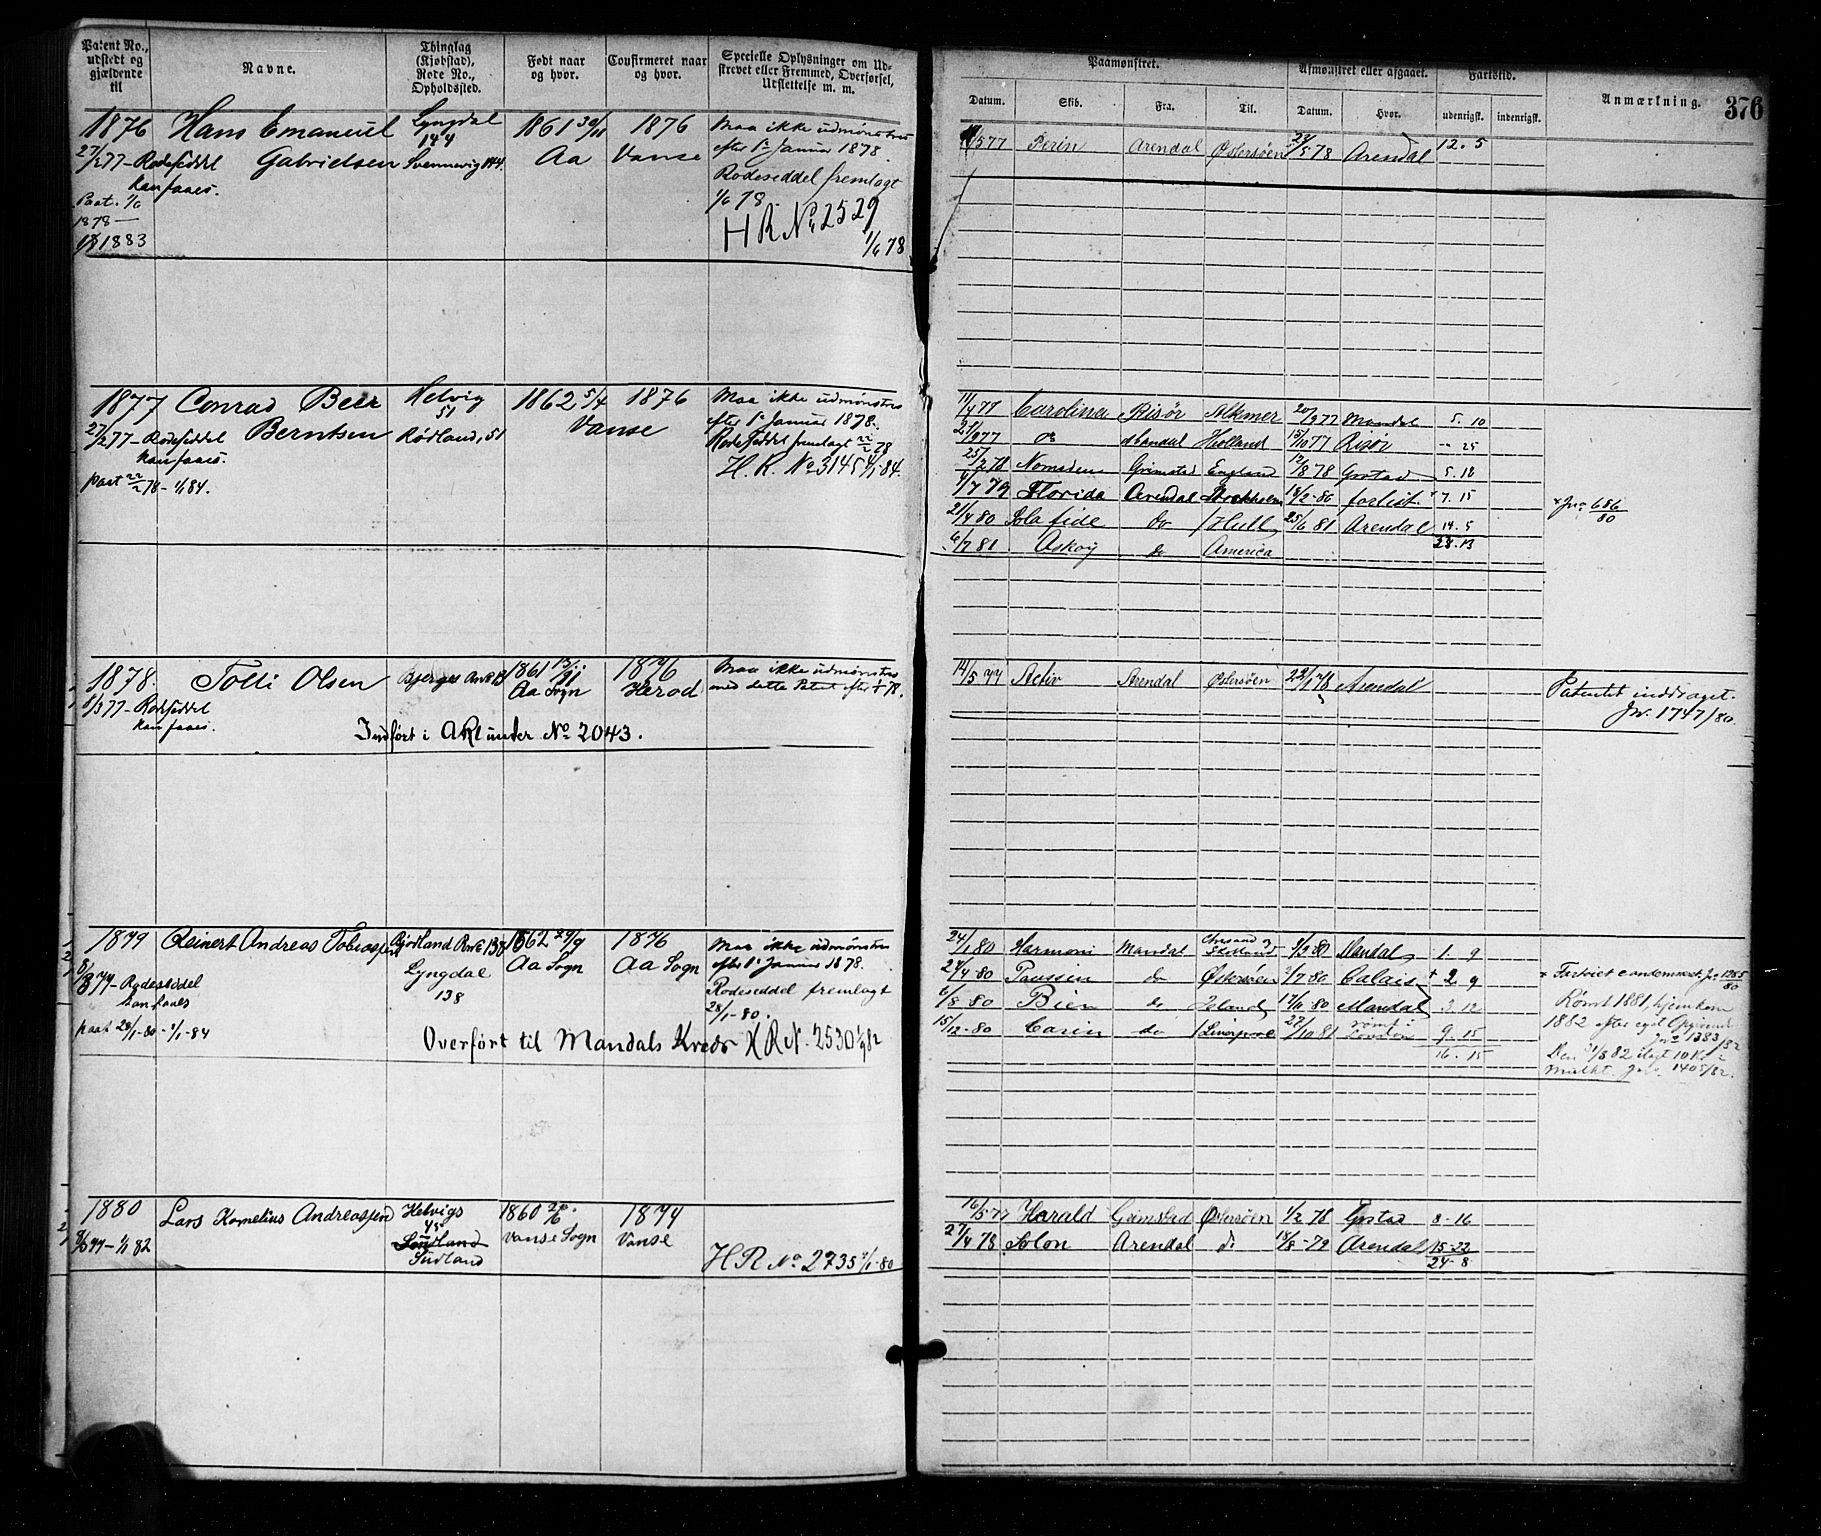 Patent No., udstedt og gjældende til
Navne.
Thinglag (Kjøbstad), Rode No., Opholdssted.
Født naar og hvor.
Confirmeret naar og hvor.
Specielle Oplysninger om Udskrevet eller Fremmed, Overførsel, Udslettelse m. m.
Paamønstret.
Afmønstret eller afgaaet.
Fartstid.
Anmærkning.
376
Datum. Skib. Fra. Til. Datum. Hvor. udenrigsk. indenrigsk.
1876 Hans Emanuel Lyngdal 1861 30/11 1876 Maa ikke udmønstres
27/277- Rodeseddel Gabrielsen 144 Aa Vanse efter 1ste Januar 1878.
kan faaes. Svennevig 144. Rodeseddel fremlagt
Pat. 1/6 1/6 78.
1878 — HR No 2529
1883 1/6 78
577 Arendal Østersøen 24/5 78 Arendal 12. 5
1877 Conrad Beer Helvig 1862 5/4 1876 Maa ikke udmønstres
27/277- Rodeseddel Berntsen 51 Vanse efter 1ste Januar 1878.
kan faaes. Rødland, 51 Rodeseddel fremlagt 22/2 78
pat 22/2 78 - 1/1 84. H. R. No 3145 1/1-84.
11/4 77 Carolina Risør Alkmer 20/9 77 Mandal 5. 10
21/9 77 do Mandal Holland 15/10 77 Risør " 25
25/2 78 Grimstad England 12/8 78 Grstad 5. 18
1/7 79 Florida Arendal Stockholm 14/2-80 forlist + 7. 15
+ Jno 686/80
21/4 80 Sola fide do Hull 25/6 81 Arendal 14. 5
6/7 81 Askøy do America 28. 13
1878. Tolli Olsen Bjerges 1861 13/11 1876 Maa ikke udmønstres
1/3 77- Rodeseddel Aa Sogn Herod med dette Patent efter 1/1 78.
kan faaes.
Indført i ARl under No 2043.
14/5 77 Activ Arendal Østersøen 28/1 78 Arendal Patentet inddraget.
Jno. 1747/80.
1879 Reinert Andreas Tobiassen Rødland Rode 138 1862 29/9 1876 Maa ikke udmønstres
8/3 77- Rodeseddel Lyngdal Aa Sogn Aa Sogn efter 1ste Januar 1878.
kan faaes 138 Rodeseddel fremlagt
paat 28/1-80 - 1/1-84 28/1-80.
Overført til Mandals Kreds HR No. 2530 1/9 82
24/1 80 Harmoni Mandal 9/3 80 Mandal 1. 9
24/4-80 do Østersøen 3/7-80 Calais + 2. 9
+ Forliset condemneret Jno 1255/80
6/8-80 Bien do Island 12/11-80 Mandal 3. 12
Rømt 1881, hjemkom
15/12-80 Carin do Liverpool 22/10 81 rømt i London 9. 15
1882 efter eget Opgivende
Jno 1383/82
16. 15
Den 31/8 82 ilagt 10 Kr i
Mulkt. Jno. 1405/82.
1880 Lars Kornelius Andreassen Helvigs 1860 28/6 1874
8/3 77- 1/1 82 45 Vanse Sogn Vanse
Sundland
Sudland HR No 2735 1/1-80
16/5 77 Harald Grimstad Østersøen 1/2 78 Grstad 8-16
27/4 78 Solon Arendal do 18/8-79 Arendal 15-22
24-8